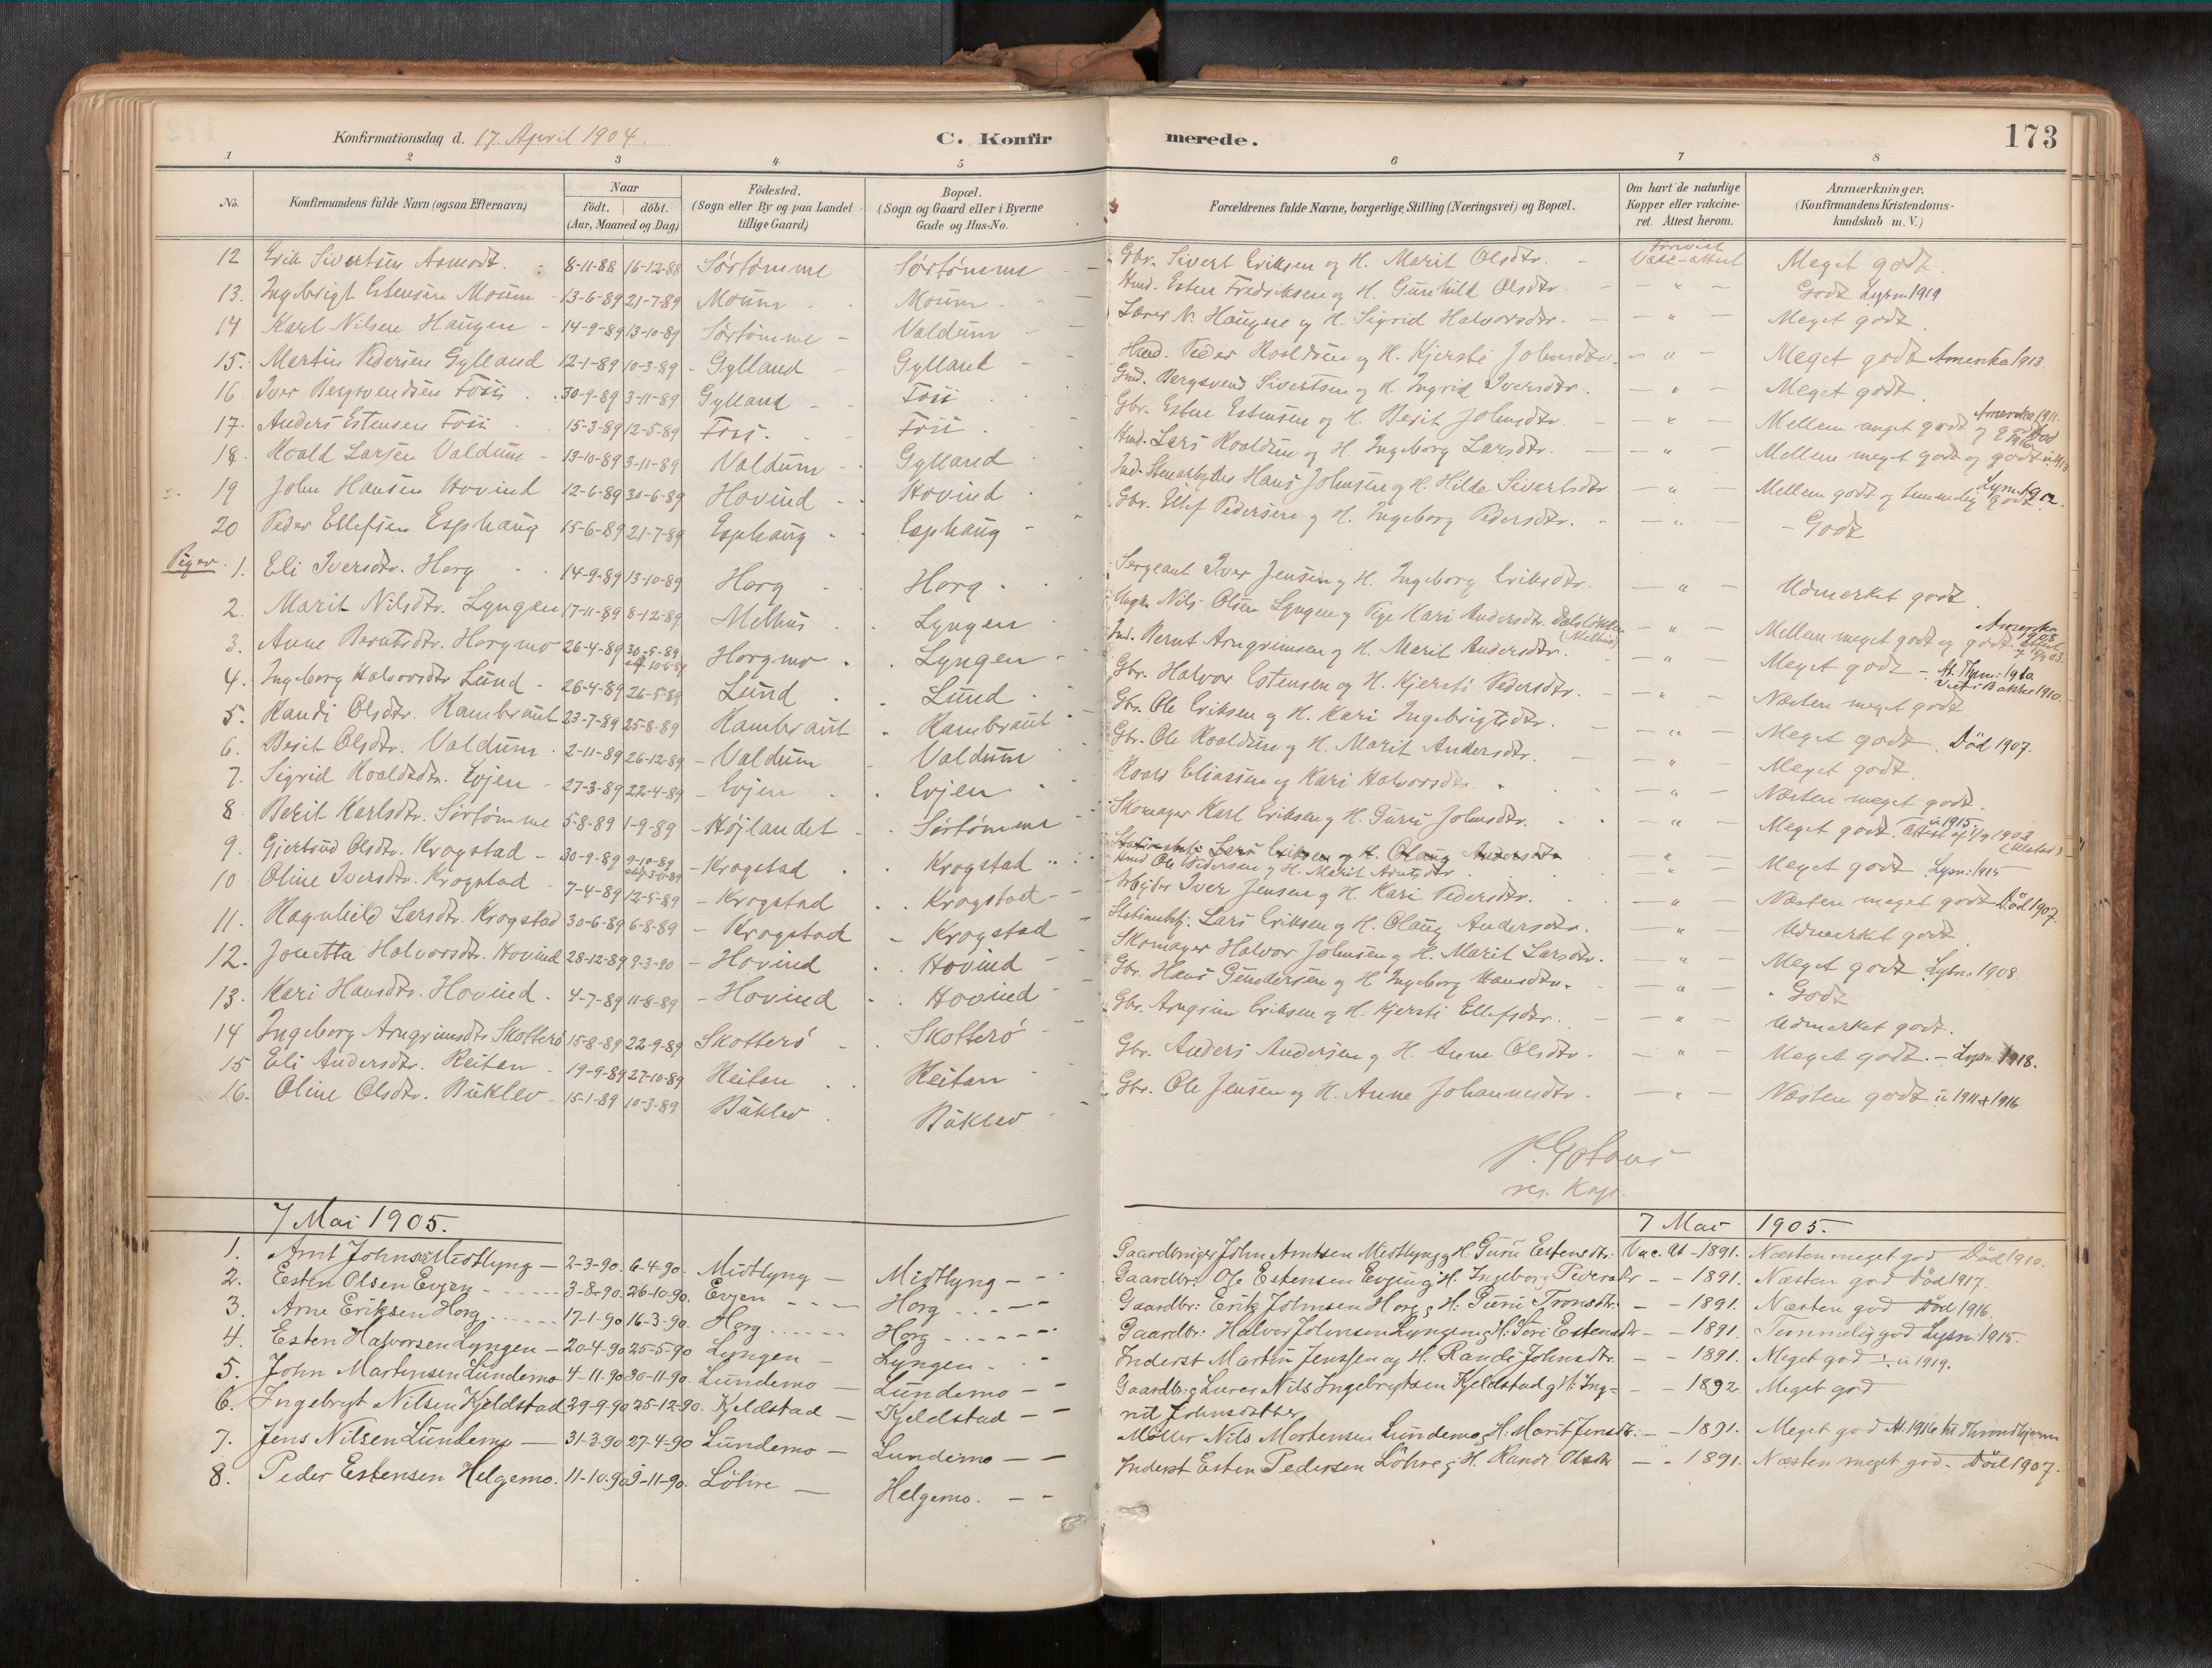 Konfirmationsdag d. 17. April 1904. C. Konfirmerede. 173
1 2 3 4 5 6 7 8
No. Konfirmandens fulde Navn (ogsaa Efternavn) Naar födt. döbt. (Aar, Maaned og Dag) Födested. (Sogn eller By og paa Landet tillige Gaard) Bopæl. (Sogn og Gaard eller i Byerne Gade og Hus-No. Forældrenes fulde Navne, borgerlige Stilling (Næringsvei) og Bopæl. Om havt de naturlige Kopper eller vakcineret. Attest herom. Anmærkninger. (Konfirmandens Kristendomskundskab m. V.)
12 Erik Sivertsen Asmodt. 8-11-88 16-12-88 Sörtömme Sörtömme Gbr. Sivert Eriksen og H. Marit Olsdtr. Meget godt.
13. Ingebrigt Estensen Moum 13-6-89 21-7-89 Moum Moum Hmd. Esten Fredriksen og H. Gunhild Olsdtr. — " — Godt Lysn 1919
14 Karl Nilsen Haugen 14-9-89 13-10-89 Sörtömme Valdum Lærer N. Haugen og H. Sigrid Halvorsdtr. — " — Meget godt.
15. Martin Pedersen Gylland 12-1-89 10-3-89 Gylland Gylland Hmd. Peder Roaldsen og H. Kjersti Johnsdtr. — " — Meget godt Amerika 1913.
16. Iver Bergsvendsen Foss 30-9-89 3-11-89 Gylland Foss Gmd. Bergsvend Sivertsen og H. Ingrid Iversdtr. — " — Meget godt.
17. Anders Estensen Foss 15-3-89 12-5-89 Foss. Foss Gbr. Esten Estensen og H. Berit Johnsdtr. — " — Mellem meget godt og godt Amerika 1911.
18. Roald Larsen Valdum 13-10-89 3-11-89 Valdum Gylland Hmd. Lars Roaldsen og H. Ingeborg Larsdtr. — " — Mellem meget godt og godt
19 John Hansen Hovind 12-6-89 30-6-89 Hovind Hovind Ind. Stenarbejder Hans Johnsen og H. Hilde Sivertsdtr. — " — Mellem godt og temmelig godt.
20 Peder Ellefsen Esphaug 15-6-89 21-7-89 Esphaug Esphaug Gbr. Ellef Pedersen og H. Ingeborg Pedersdtr. — " — Godt
Piger. 1. Eli Iversdtr. Horg 14-9-89 13-10-89 Horg Horg Sergeant Iver Jensen og H. Ingeborg Eriksdtr. — " — Udmerket godt.
2. Marit Nilsdtr. Lyngen 17-11-89 8-12-89 Melhus Lyngen Ungk. Nils Olsen Lyngen og Pige Kari Andersdtr. (Melhus) — " — Mellem meget godt og godt. Amerika 1908
3. Anne Berntsdtr. Horgmo 26-4-89 30-5-89 Horgmo Lyngen Ind. Bernt Arngrimsen og H. Marit Andersdtr. — " — Meget godt
4. Ingeborg Halvorsdtr Lund 26-4-89 26-5-89 Lund Lund Gbr. Halvor Estensen og H. Kjersti Pedersdtr. — " — Næsten meget godt
5. Randi Olsdtr. Rambraut 23-7-89 25-8-89 Rambraut Rambraut Gbr. Ole Eriksen og H. Kari Ingebrigtsdtr. — " — Meget godt. Död 1907.
6. Berit Olsdtr. Valdum 2-11-89 26-12-89 Valdum Valdum Gbr. Ole Roaldsen og H. Marit Andersdtr. — " — Meget godt.
7. Sigrid Roaldsdtr. Evjen 27-3-89 22-4-89 Evjen Evjen Roald Eliassen og Kari Halvorsdtr. — " — Næsten meget godt.
8. Berit Karlsdtr. Sörtömme 5-8-89 1-9-89 Höjlandet Sörtömme Skomager Karl Eriksen og H. Guru Johnsdtr. — " — Meget godt.
9. Gjertrud Olsdtr. Krogstad 30-9-89 9-10-89 Krogstad Krogstad Stationsbetj. Lars Eriksen og H. Olaug Andersdtr. Hmd Ole Pedersen og H. Marit Arntsdtr. — " — Meget godt Lysn: 1915
10 Oline Iversdtr. Krogstad 7-4-89 12-5-89 Krogstad Krogstad Arbejder Iver Jensen og H. Kari Pedersdtr. — " — Næsten meget godt Död 1907.
11. Ragnhild Larsdtr. Krogstad 30-6-89 6-8-89 Krogstad Krogstad Stationsbetj. Lars Eriksen og H. Olaug Andersdtr. — " — Udmerket godt.
12. Jonetta Halvorsdtr. Hovind 28-12-89 9-3-90 Hovind Hovind Skomager Halvor Johnsen og H. Marit Larsdtr. — " — Meget godt Lysn: 1908
13. Kari Hansdtr. Hovind. 4-7-89 11-8-89 Hovind Hovind Gbr. Hans Gundersen og H Ingeborg Hansdtr. — " — Godt
14 Ingeborg Arngrimsdtr Skotterö 15-8-89 22-9-89 Skotterö Skotterö Gbr. Arngrim Eriksen og H. Kjersti Ellefsdtr. — " — Udmerket godt.
15 Eli Andersdtr. Reitan 19-9-89 27-10-89 Reitan Reitan Gbr. Anders Andersen og H. Anne Olsdtr. — " — Meget godt. - Lysn 1918.
16. Oline Olsdtr. Buklev 15-1-89 10-3-89 Buklev Buklev Gbr. Ole Jensen og H. Anne Johannesdtr. — " — Næsten godt u 1911 + 1916
res. Kap.
7 Mai 1905. 7 Mai 1905.
1. Arnt Johnsen Midtlyng 2-3-90. 6-4-90. Midtlyng Midtlyng Gaardbruger John Arntsen Midtlyng og H. Guru Estensdtr: Vac. At - 1891. Næsten meget god Död 1910.
2. Esten Olsen Evjen 3-8-90. 26-10-90. Evjen Horg Gaardbr: Ole Estensen Evjen og H. Ingeborg Pedersdtr - - 1891. Næsten god Död 1917.
3. Arne Eriksen Horg 17-1-90 16-3-90. Horg Horg Gaardbr: Erik Johnsen Horg og H: Guru Tronsdtr: - - 1891. Næsten god Död 1916.
4. Esten Halvorsen Lyngen 20-4-90 25-5-90 Lyngen Lyngen Gaardbr: Halvor Johnsen Lyngen og H: Siri Estensdtr - - 1891. Temmelig god Lysn: 1915.
5. John Martinsen Lundemo 4-11-90 30-11-90. Lundemo Lundemo Inderst Martin Jenssen og H. Randi Johnsdtr. - - 1891. Meget god u 1919.
6. Ingebrigt Nilsen Kjeldstad 29-9-90 25-12-90. Kjeldstad Kjeldstad Gaardbr. og Lærer Nils Ingebrigtsen Kjeldstad og H: Ing= - - 1892. Meget god
rid Johnsdatter
7. Jens Nilsen Lundemo 31-3-90 27-4-90 Lundemo Lundemo Möller Nils Mortensen Lundemo og H: Marit Jensdtr: - - 1891. Meget god At. 1916 til Throndhjem
8. Peder Estensen Helgemo. 11-10-90 9-11-90. Löhre Helgemo. Inderst Esten Pedersen Löhre og H. Randi Olsdtr - - 1891. Næsten meget god. Död 1907.